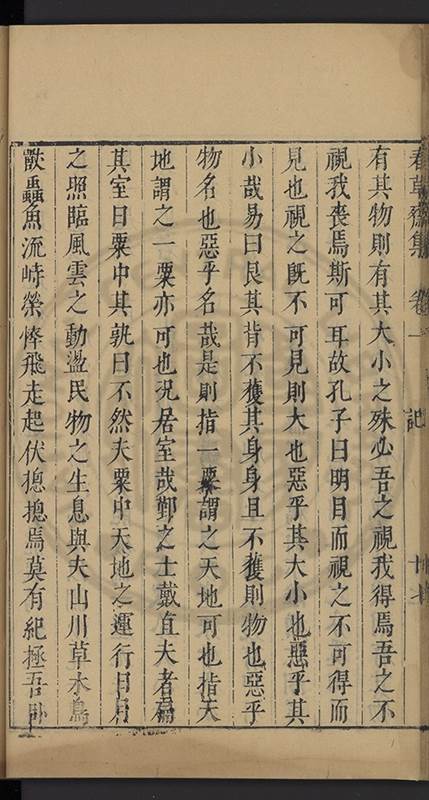 春草齋集 卷一 記
有其物則有其大小之殊必吾之視我得焉吾之不
視我喪焉斯可耳故孔子曰明目而視之不可得而
見也視之旣不可見則大也惡乎其大小也惡乎其
小哉易曰艮其背不獲其身身且不獲則物也惡乎
物名也惡乎名哉是則指一粟謂之天地可也指天
地謂之一粟亦可也況居室哉鄞之士戴直夫者扁
其室曰粟中其孰曰不然夫粟中天地之運行日月
之照臨風雲之動盪民物之生息與夫山川草木鳥
獸蟲魚流峙榮悴飛走起伏揔揔焉莫有紀極吾卧